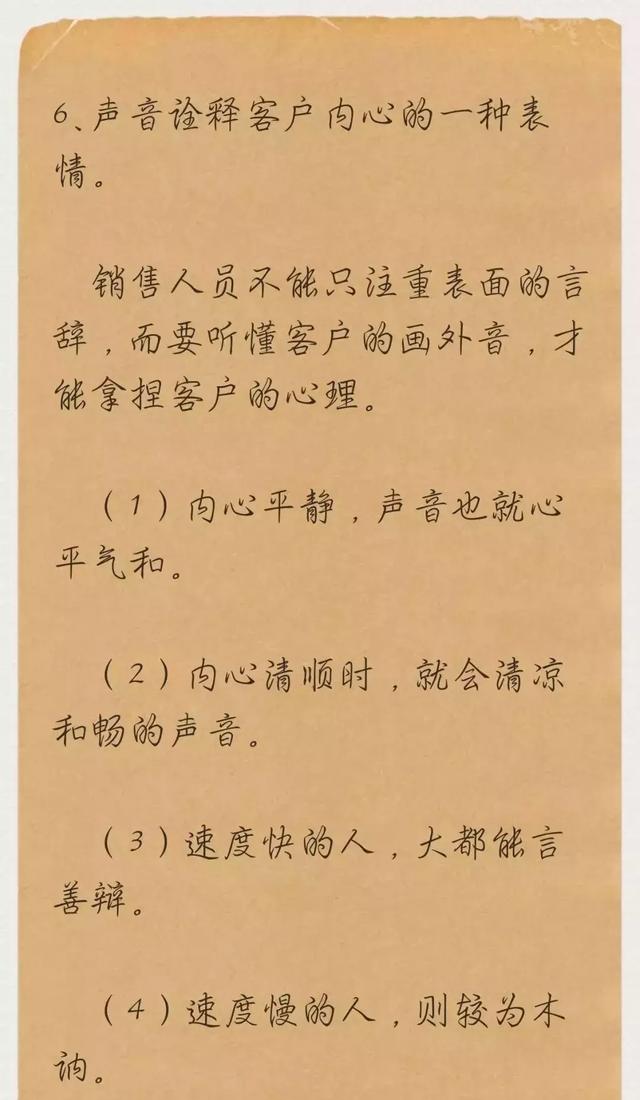 6、声音诠释客户内心的一种表
情。
销售人员不能只注重表面的言
辞，而要听懂客户的画外音，才
能拿捏客户的心理。
（1）内心平静，声音也就心
平气和。
（2）内心清顺时，就会清凉
和畅的声音。
（3）速度快的人，大都能言
善辩。
（4）速度慢的人，则较为木
讷。